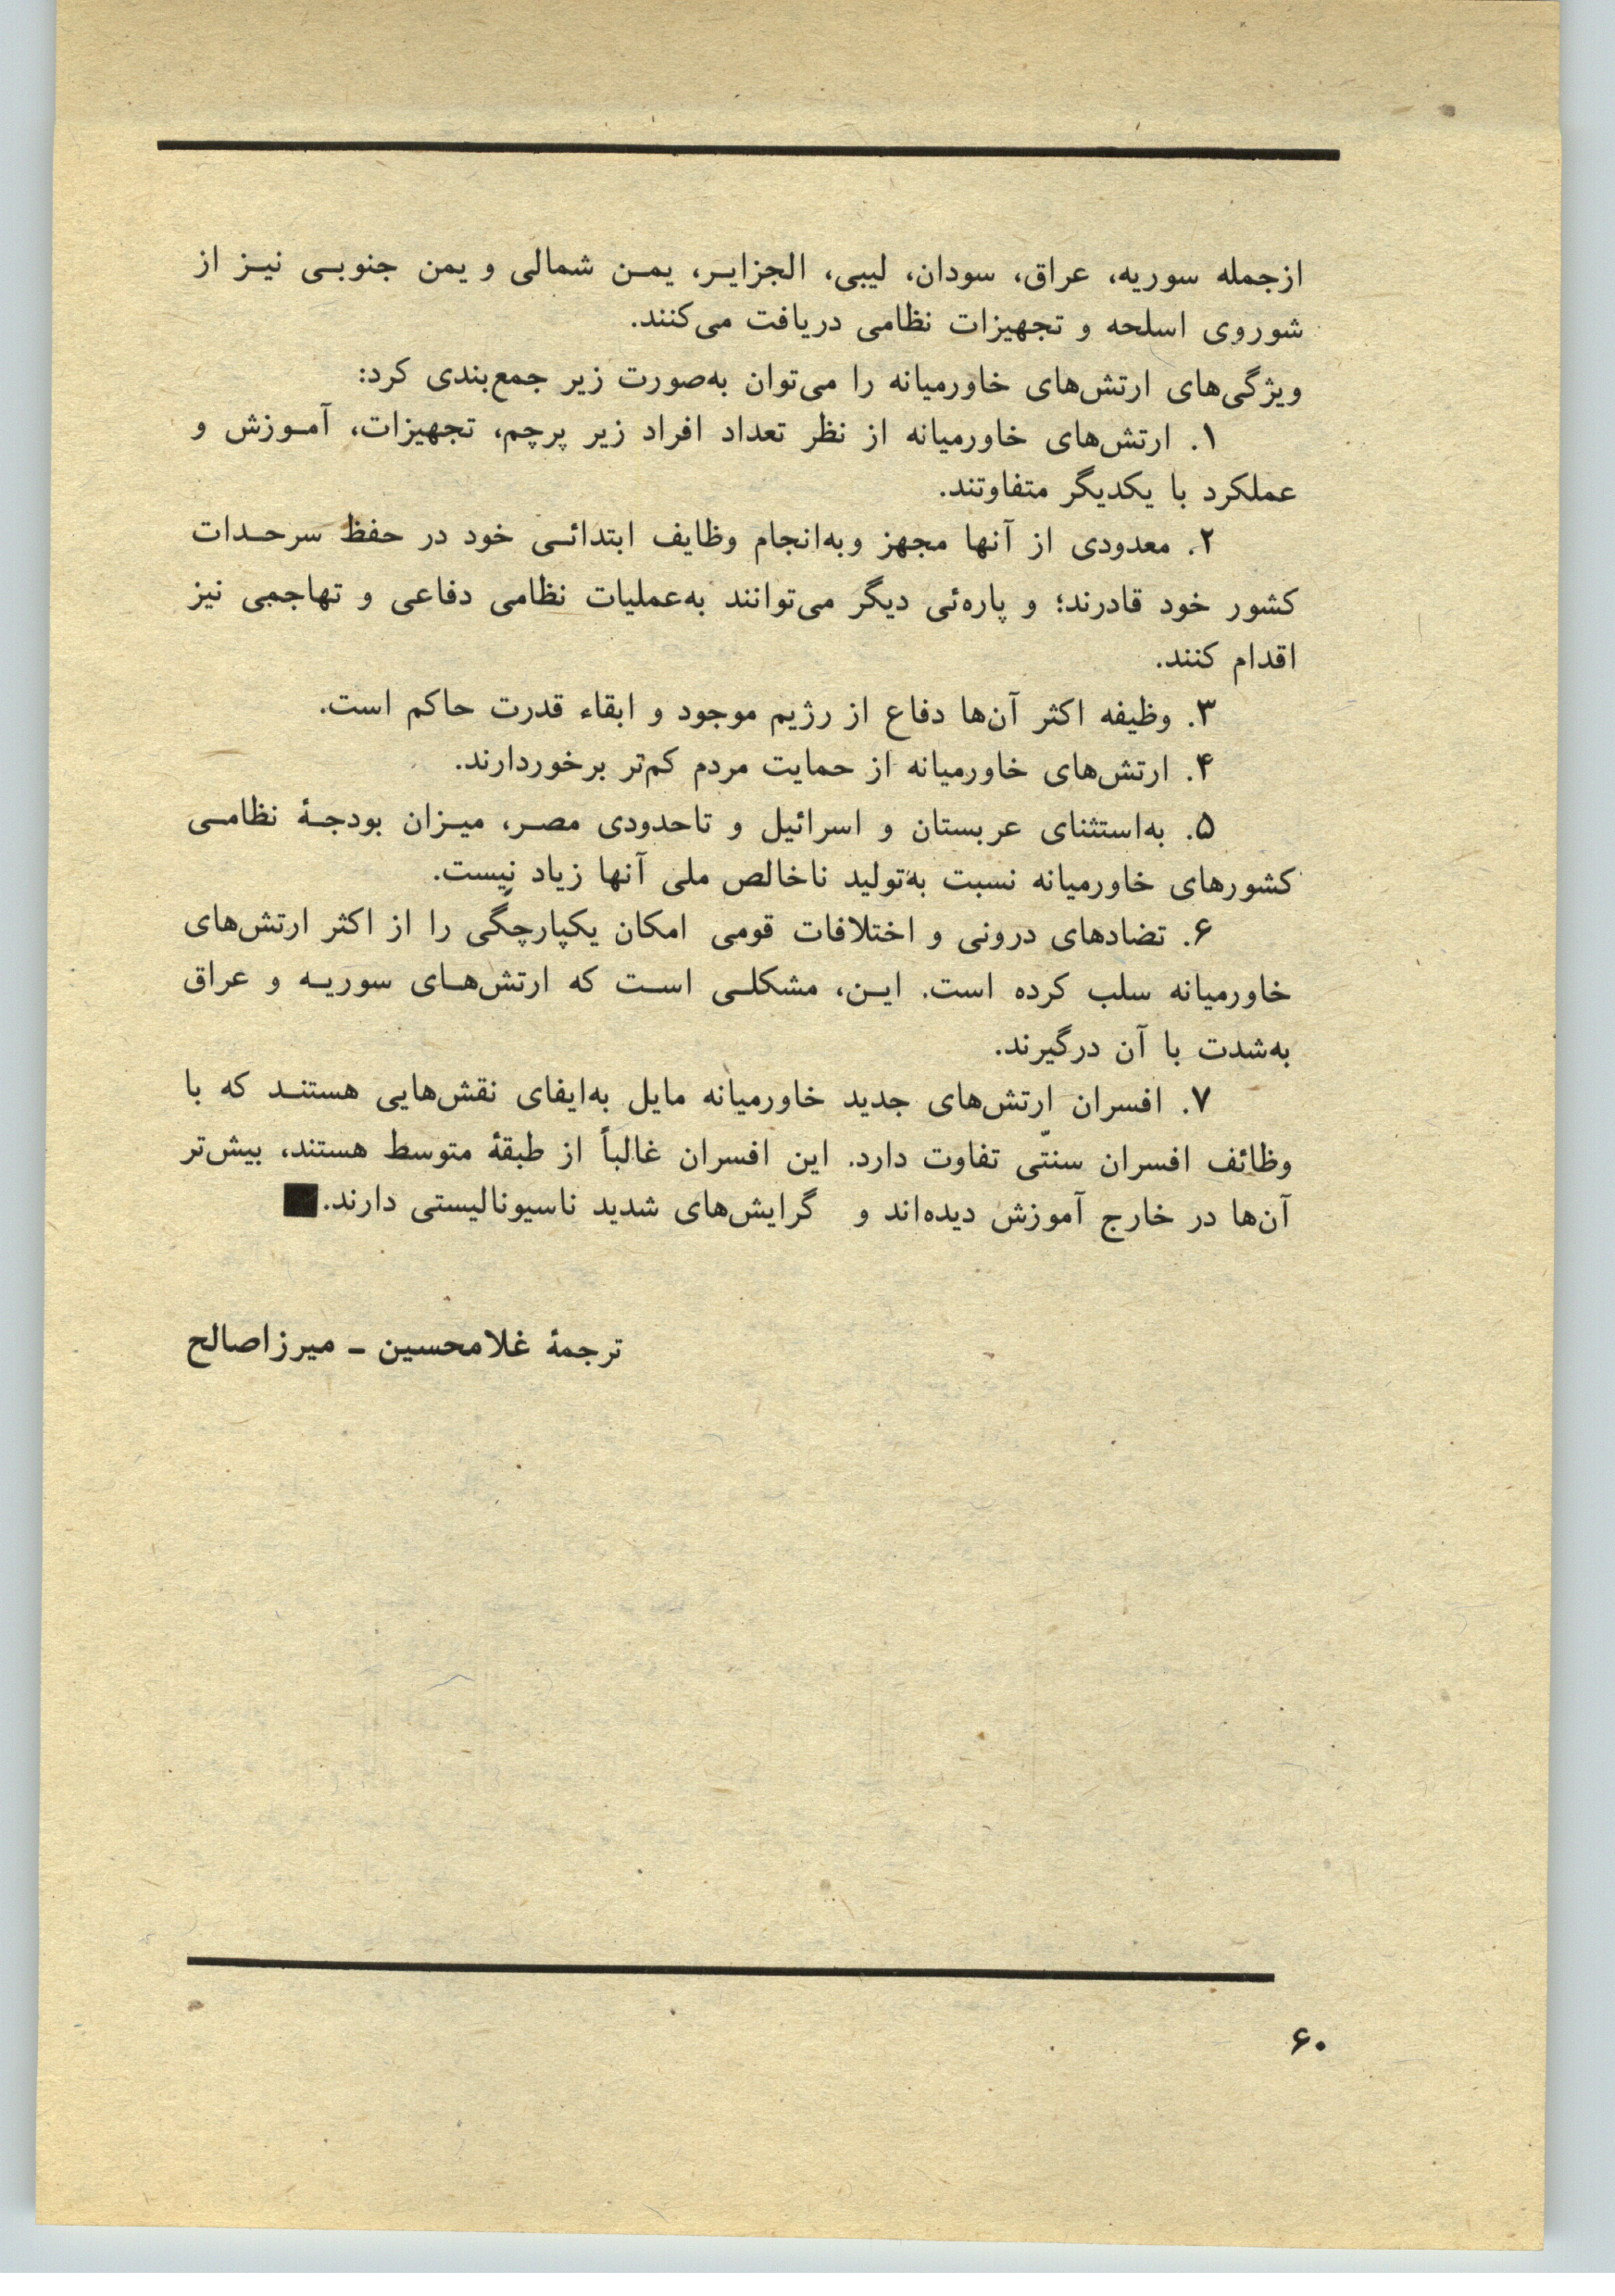 ازجمله سوریه، عراق، سودان، لیبی، الجزایر، یمن شمالی و یمن جنوبی نیز از
شوروی اسلحه و تجهیزات نظامی دریافت می‌کنند.
ویژگی‌های ارتش‌های خاورمیانه را می‌توان به‌صورت زیر جمع‌بندی کرد:
۱. ارتش‌های خاورمیانه از نظر تعداد افراد زیر پرچم، تجهیزات، آموزش و
عملکرد با یکدیگر متفاوتند.
۲. معدودی از آنها مجهز وبه‌انجام وظایف ابتدائی خود در حفظ سرحدات
کشور خود قادرند؛ و پاره‌ئی دیگر می‌توانند به‌عملیات نظامی دفاعی و تهاجمی نیز
اقدام کنند.
۳. وظیفه اکثر آن‌ها دفاع از رژیم موجود و ابقاء قدرت حاکم است.
۴. ارتش‌های خاورمیانه از حمایت مردم کم‌تر برخوردارند.
۵. به‌استثنای عربستان و اسرائیل و تاحدودی مصر، میزان بودجهٔ نظامی
کشورهای خاورمیانه نسبت به‌تولید ناخالص ملی آنها زیاد نیست.
۶. تضادهای درونی و اختلافات قومی امکان یکپارچگی را از اکثر ارتش‌های
خاورمیانه سلب کرده است. این، مشکلی است که ارتش‌های سوریه و عراق
به‌شدت با آن درگیرند.
۷. افسران ارتش‌های جدید خاورمیانه مایل به‌ایفای نقش‌هایی هستند که با
وظائف افسران سنّتی تفاوت دارد. این افسران غالباً از طبقهٔ متوسط هستند، بیش‌تر
آن‌ها در خارج آموزش دیده‌اند و گرایش‌های شدید ناسیونالیستی دارند.■
ترجمهٔ غلامحسین ـ میرزاصالح
۶۰